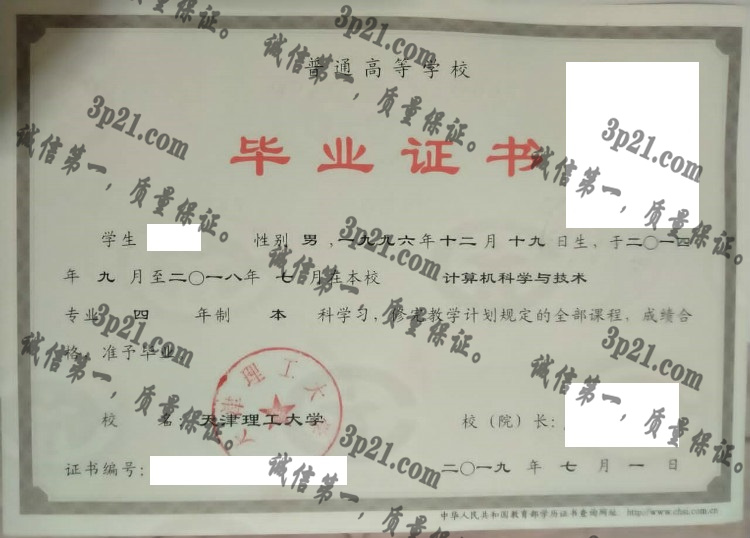 普通高等学校
毕业证书
学生 性别 男 ,一九九六年十二月十九日生、于二〇一四
年 九 月至二〇一八年 七 月在本校 计算机科学与技术
专业 四 年制 本 科学习,修完教学计划规定的全部课程,成绩合
格,准予毕业
天津理工大学
校 名:天津理工大学 校(院)长:
证书编号: 二〇一九 年 七 月 一 日
中华人民共和国教育部学历证书查询网址 http://www.chsi.com.cn
3p21.com
诚信第一,质量保证。
3p21.com
诚信第一,质量保证。
3p21.com
诚信第一,质量保证。
3p21.com
诚信第一,质量保证。
3p21.com
诚信第一,质量保证。
3p21.com
诚信第一,质量保证。
3p21.com
诚信第一,质量保证。
3p21.com
诚信第一,质量保证。